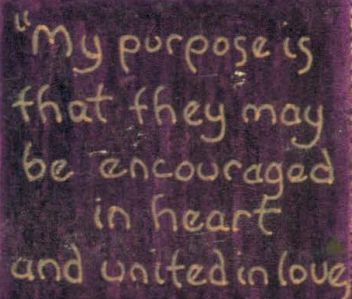 "My purpose is
that they may
be encouraged
in heart
and united in love,